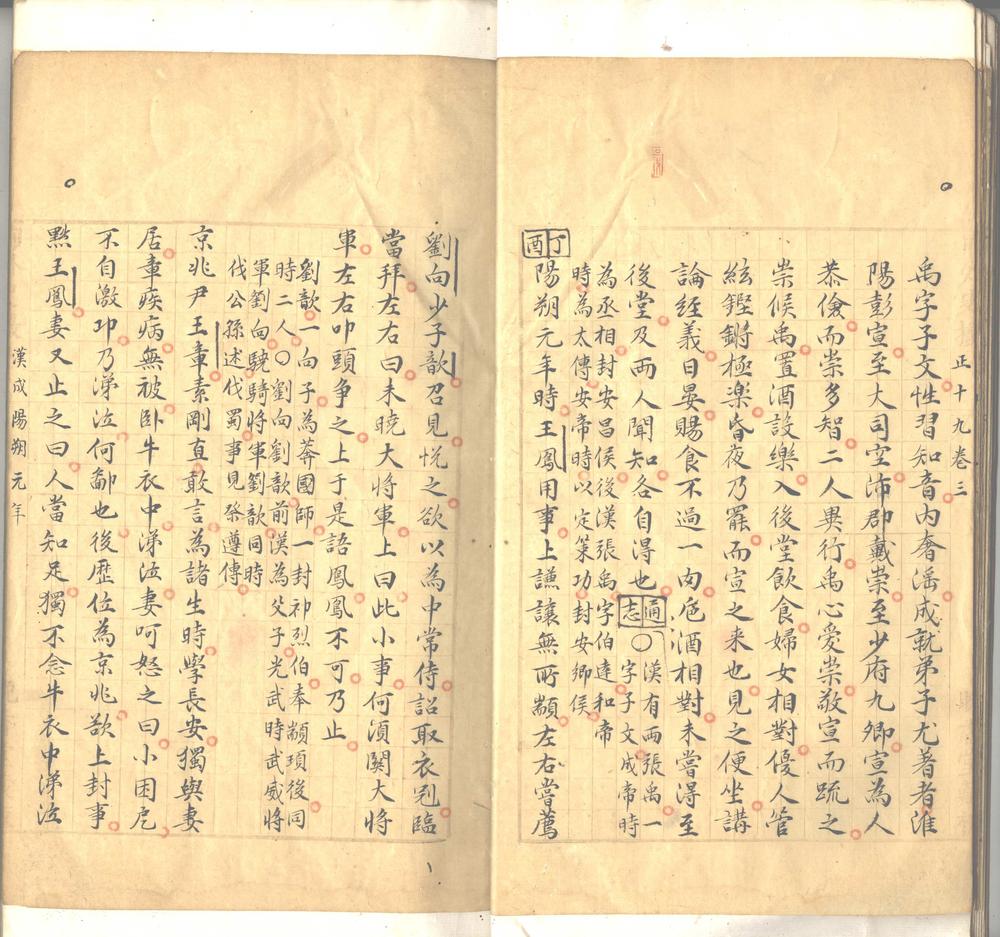 正十九卷三
禹字子文性習知音內奢滛成就弟子尤著者淮
陽彭宣至大司空沛郡戴崇至少府九卿宣為人
恭儉而崇多智二人異行禹心愛崇敬宣而疏之
崇候禹置酒設樂入後堂飲食婦女相對優人管
絃鏗鏘極楽昏夜乃罷而宣之来也見之便坐講
論經義日晏賜食不過一肉巵酒相對未嘗得至
後堂及兩人聞知各自得也通志〇漢有兩張禹一字子文成帝時
為丞相封安昌侯後漢張禹字伯達和帝
時為太傅安帝時以定策功封安卿侯
丁酉
陽朔元年時王鳳用事上謙讓無所顓左右嘗薦
劉向少子歆召見悅之欲以為中常侍詔取衣冠臨
當拜左右曰未曉大將軍上曰此小事何湏関大將
軍左右叩頭争之上于是語鳳鳳不可乃止
劉歆一向子為莽國師一封祁烈伯奉顓頊後同
時二人〇劉向劉歆前漢為父子光武時武威將
軍劉向驍騎將軍劉歆同時
伐公孫述伐蜀事見祭遵傳
京兆尹王章素剛直敢言為諸生時學長安獨與妻
居章疾病無被卧牛衣中涕泣妻呵怒之曰小困戹
不自激卬乃涕泣何鄙也後歷位為京兆欲上封事
㸃王鳳妻又止之曰人當知足獨不念牛衣中涕泣
漢成陽朔元年